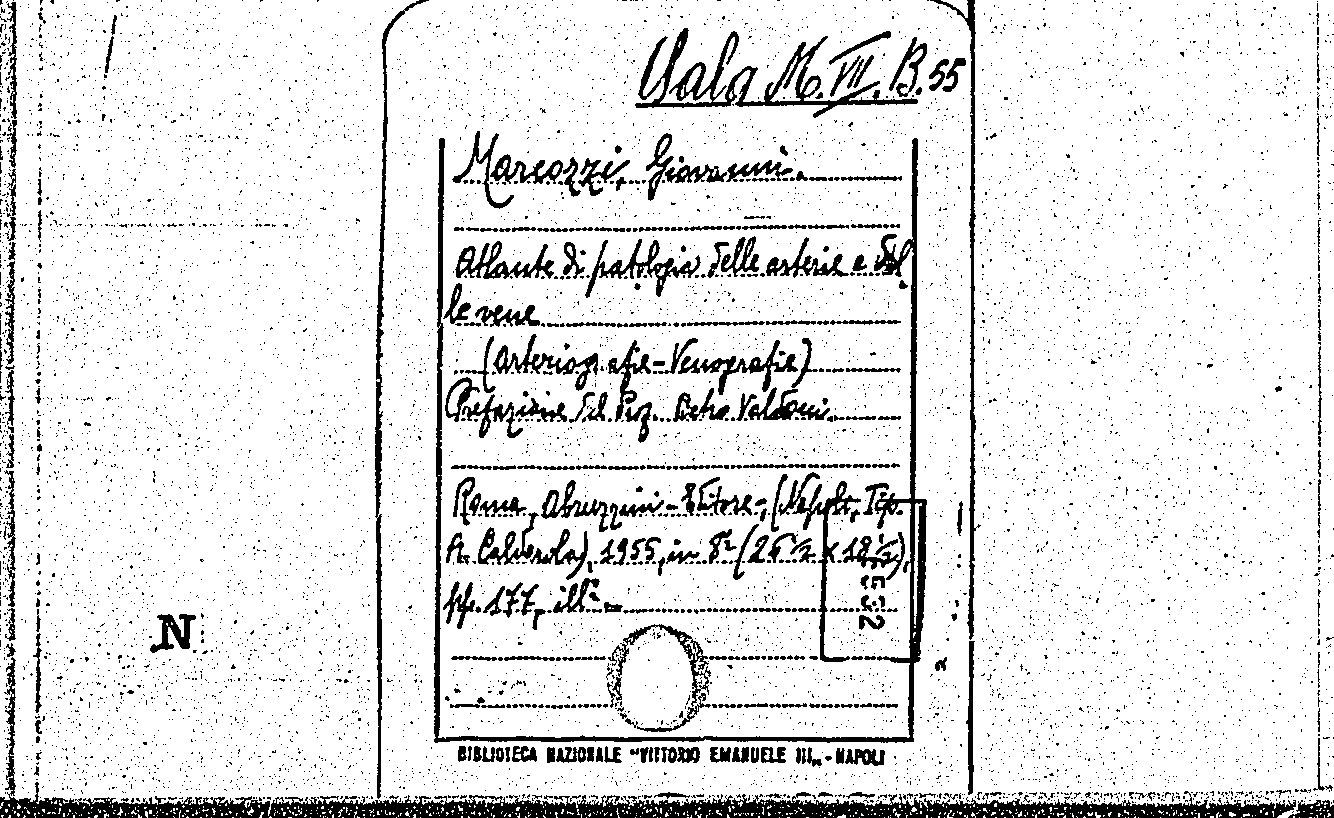 Sala M. VII. B. 55
Marcozzi, Giovanni.
Atlante di patologia delle arterie e del
le vene
(Arteriografie - Venografie)
Prefazione del Prof. Pietro Valdoni.
Roma, Abruzzini - Editore -, (Napoli, Tip.
A. Calderola), 1955, in 8º (25 ½ x 18 ½),
pp. 177, illº. -
N
BIBLIOTECA NAZIONALE "VITTORIO EMANUELE III" - NAPOLI